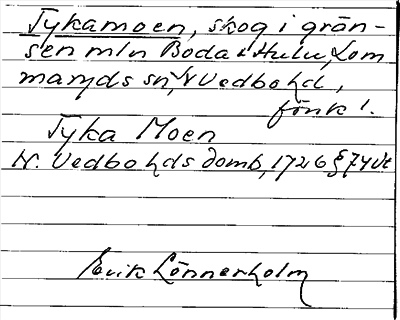 Tykamoen, skog i grän-
sen mln Boda & Hulu, Lom
maryds sn, N Vedbo hd,
Jönk l.
Tyka Moen
N. Vedbo hds domb, 1726 § 74 vt
Erik Lönnerholm